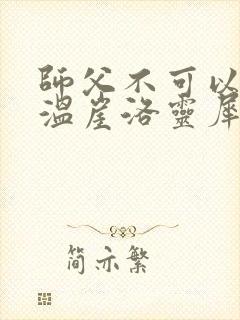 師父不可以
溫崖洛靈犀
简亦繁